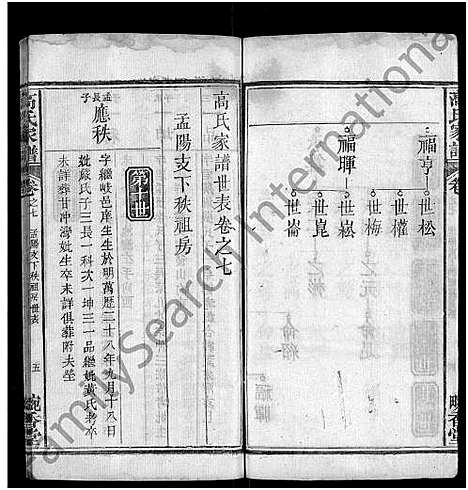 高氏家譜
卷
福亨
世松
世權
世梅
福暉
世崧
世崑
世崙
晚香堂
高氏家譜世表卷之七
孟陽支下秩祖房
第十世
孟長子
應秩
字繼岐邑庠生生於明萬歷二十八年九月十八日
妣嚴氏子三長一科次一坤三一品繼妣黃氏老卒
未詳葬甘冲灣妣生卒未詳俱葬附夫塋
高氏家譜
卷之七
孟陽支下秩祖房世表
五
晚香堂
FamilySearch International